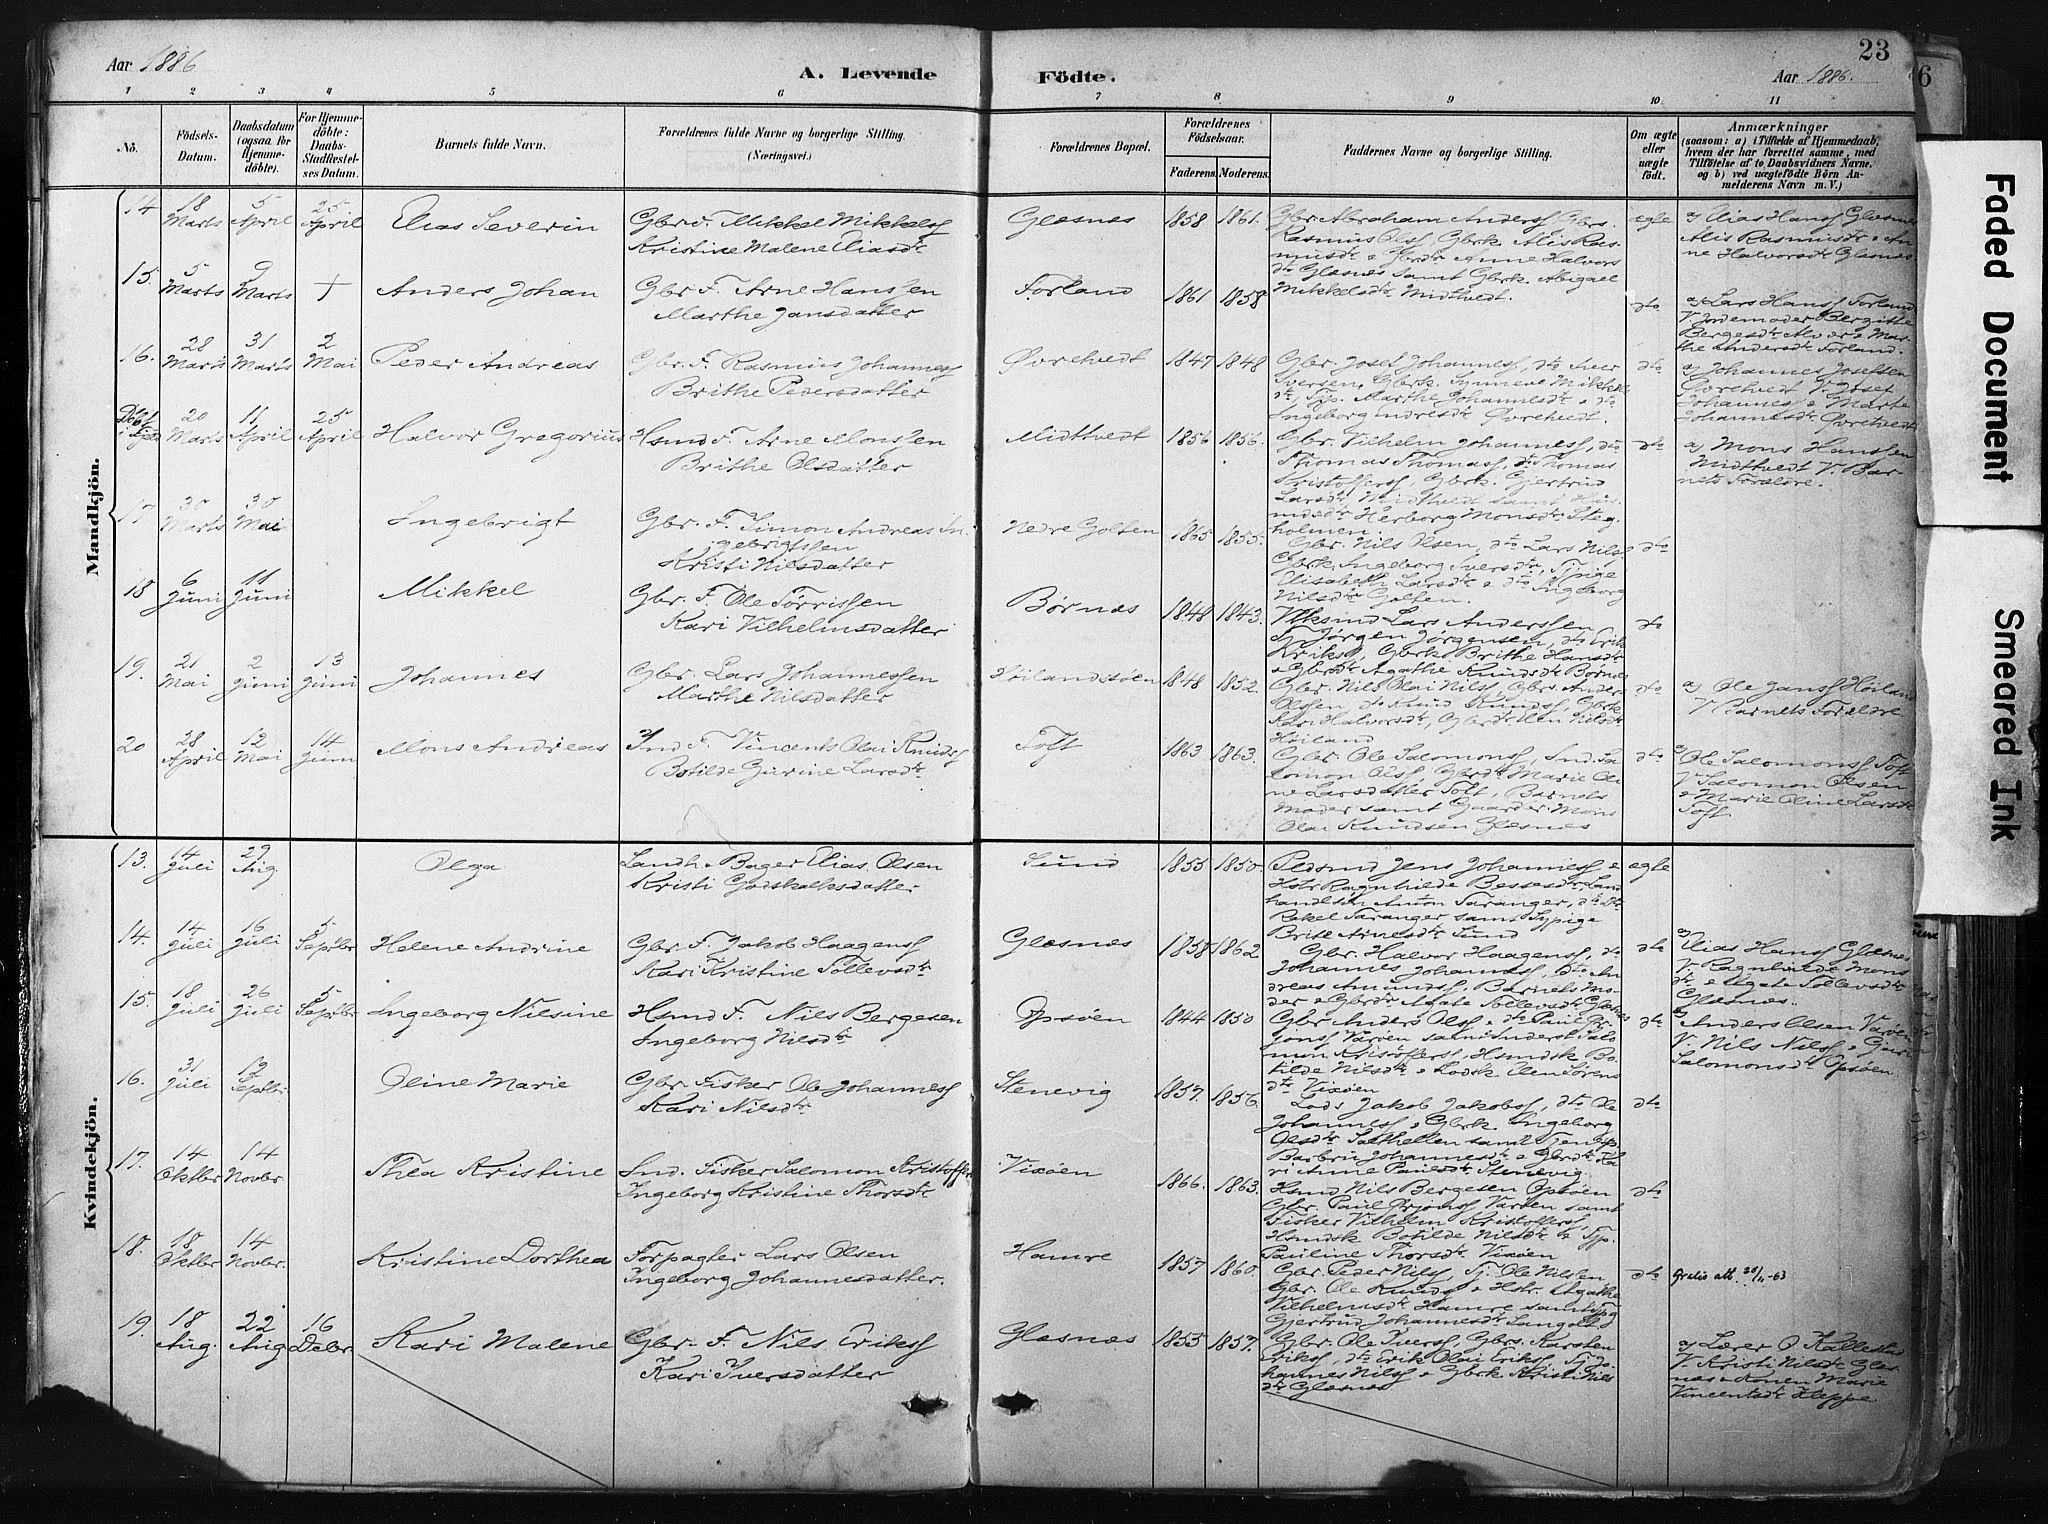 Aar 1886
A. Levende Födte.
Aar 1886.
23
1 2 3 4 5 6 7 8 9 10 11
Nö.
Födsels-Datum.
Daabsdatum (ogsaa for Hjemmedöbte).
For Hjemmedöbte: Daabs-Stadfæstelses Datum.
Barnets fulde Navn.
Forældrenes fulde Navne og borgerlige Stilling. (Næringsvei.)
Forældrenes Bopæl.
Forældrenes Födselsaar.
Faderens. Moderens.
Faddernes Navne og borgerlige Stilling.
Om ægte eller uægte födt.
Anmærkninger
(saasom: a) i Tilfælde af Hjemmedaab, hvem der har forrettet samme, med Tilföielse af to Daabsvidners Navne. og b) ved uægtefödte Börn Anmelderens Navn m. V.)
Mandkjön.
14 18 Marts 5 April 25 April Elias Severin
Gbr. F. Mikkel Mikkels
Kristine Malene Eliasdr
Glesnes 1858 1861.
Gbr Abraham Anders, Gbr.
Rasmus Ols, Gbrk Alis Ras-
musdr & Gbrdr Anne Halvors
dr Glesnes samt Gbrk. Abigael
Mikkelsdr Midtvedt.
ægte
a) Elias Hans Glesnes
Alis Rasmusdr & An-
ne Halvorsdr Glesnes
15. 5 Marts 9 Marts + Anders Johan
Gbr F. Arne Hanssen
Marthe Jansdatter
Forland 1861 1858 dto
a) Lars Hans Forland
V. Jordemoder Bergitte
Bergesdr & Mar-
the Andersdr Forland.
16. 28 Marts 31 Marts 2 Mai Peder Andreas
Gbr. F. Rasmus Johannes
Brithe Pedersdatter
Øvretvedt 1847 1848
Gbr. Josef Johannes, dto Iver
Iversen, Gbrk. Synneve Mikkels
dr, Typ. Marthe Johannesdr & dto
Ingeborg Indresdr Øvretvedt.
dto
a) Johannes Josefsen
Øvretvedt V. Josef
Johannes & Marte
Johannesdr Øvretvedt
20 Marts 11 April 25 April Halvor Gregorius
Hsmd F. Arne Monssen
Brithe Olsdatter
Midttvedt 1856 1856.
Gbr. Vilhelm Johannes, dto
Thomas Thomas, dto Thomas
Kristoffers, Gbrk. Gjertrud
Larsdr Midttvedt samt Hus-
mdsdr Herborg Monsdr Steg-
holmen
dto
a) Mons Hanssen
Midttvedt V. Bar-
nets Forældre.
17 30 Marts 30 Mai Ingebrigt
Gbr. F. Simon Andreas In-
gebrigtssen
Kristi Nilsdatter
Nedre Golten 1865 1855.
Gbr. Nils Olsen, dto Lars Nils,
Gbrk. Ingeborg Iversdr, Typige
Elisabeth Larsdr & dto Ingeborg
Nilsdr Golten.
dto
18 6 Juni 11 Juni Mikkel
Gbr. F. Ole Törrissen
Kari Vilhelmsdatter
Børnæs 1848 1843.
Lars Anderssen
Tj. Jørgen Jørgensen, dto Erik
Eriks, Gbrk Brithe Hansdr
& Gbrdr Agathe Knudsdr Børnes
dto
19. 21 Mai 2 Juni 13 Juni Johannes
Gbr. Lars Johannessen
Marthe Nilsdatter
Høilandsøen 1848 1852.
Gbr. Nils Olai Nils, Gbrs. Anders
Olssen, dto Knud Knuds, Gbrk
Kari Halvorsdr, Gbrdr Elen Nilsdr
Høiland
dto
a) Ole Jans Høiland
V. Barnets Forældre
20 28 April 12 Mai 14 Juni Mons Andreas
Ind. F. Vincents Olai Knuds
Botilde Gurine Larsdr.
Toft 1863 1863.
Gbr. Ole Salomons, Ind. Sa-
lomon Ols, Gbrdr Marie Oli-
ne Larsdatter Toft, Barnets
Moder samt Gaarder. Mons
Olai Knudsen Glesnes
dto
a) Ole Salomons Toft
V. Salomon Olsen
& Marie Oline Larsdr
Toft
Kvindekjön.
13. 14 Juli 29 Aug Olga
Landh. & Bager Elias Olsen
Kristi Godskalksdatter
Sund 1855 1850.
Pedsmd Jens Johannes &
Hstr Ragnhilde Bessesdr, Land-
handler Anton Taranger, dto Dr.
Rakel Taranger samt Typige
Brite Arnesdr Sund
ægte
14. 14 Juli 16 Juli 5 Septbr Helene Andrine
Gbr. F. Jakob Haagens
Kari Kristine Tollevsdr
Glesnes 1858 1862
Gbr. Halvor Haagens, dto
Johannes Johannes, dto An-
dreas Amunds, Barnets Mo-
der & Gbrdr Agate Tollevsdr Glesnes
dto
a) Elias Hans Glesnes
V. Ragnhilde Mons
dr & Agate Tollevsdr
Glesnes.
15. 18 Juli 26 Juli 5 Septbr Ingeborg Nilsine
Hsmd F. Nils Bergesen
Ingeborg Nilsdr
Opsöen 1844 1850
Gbr Anders Ols & dto Paul Ør-
jons Varöen samt Inderst Salo-
mon Kristoffers, Hsmdsk Bo-
tilde Nilsdr & Lodsk Elen Sörens
dr Vixöen
dto
a) Anders Olsen Varöen
V. Nils Nils & Guri
Salomonsdr Opsöen
16. 31 Juli 12 Septbr. Oline Marie
Gbr. Fisker Ole Johannes
Kari Nilsdr
Stenevig 1857. 1856.
Lods Jakob Jakobs, dto Ole
Johannes & Gbrk. Ingeborg
Olsdr Salthellen samt Tjenep.
Barbru Johannesdr & Gbrdr Ka-
ri Anne Paulsdr Stenevig.
dto
17. 14 Oktbr 14 Novbr. Thea Kristine
Ind. Fisker Salomon Kristoffers
Ingeborg Kristine Thorsdr
Vixöen 1866. 1863.
Hsmd Nils Bergesen Opsöen
Gbr. Paul Ørjons, Varöen samt
Fisker Vilhelm Kristoffers,
Hsmdsk Botilde Nilsdr & Typ.
Pauline Thorsdr Vixöen
dto
18. 18 Oktbr 14 Novbr. Kristine Dorthea
Forpagter Lars Olsen
Ingeborg Johannesdatter.
Hamre 1857 1860.
Gbr. Peder Nils, Tj. Ole Nilssen
Gbr. Ole Knuds & Hstr. Agathe
Vilhelmsdr Hamre samt Typ
Gjertrud Johannesdr
dto
Gratis att. 28/11-63
19. 18 Aug. 22 Aug 16 Debr. Kari Malene
Gbr. F. Nils Eriks
Kari Iversdatter
Glesnæs 1855 1857.
Gbr. Ole Ivers, Gbrs. Karsten
Eriks, dto Erik Olai Eriks, Tj. Jo-
hannes Nils & Gbrk Kristi Nils
dr Glesnes
a) Lærer O. Kallestad
V. Kristi Nilsdr Gles-
næs & Konen Marie
Vincentsdr Steppe
Faded Document
Smeared Ink